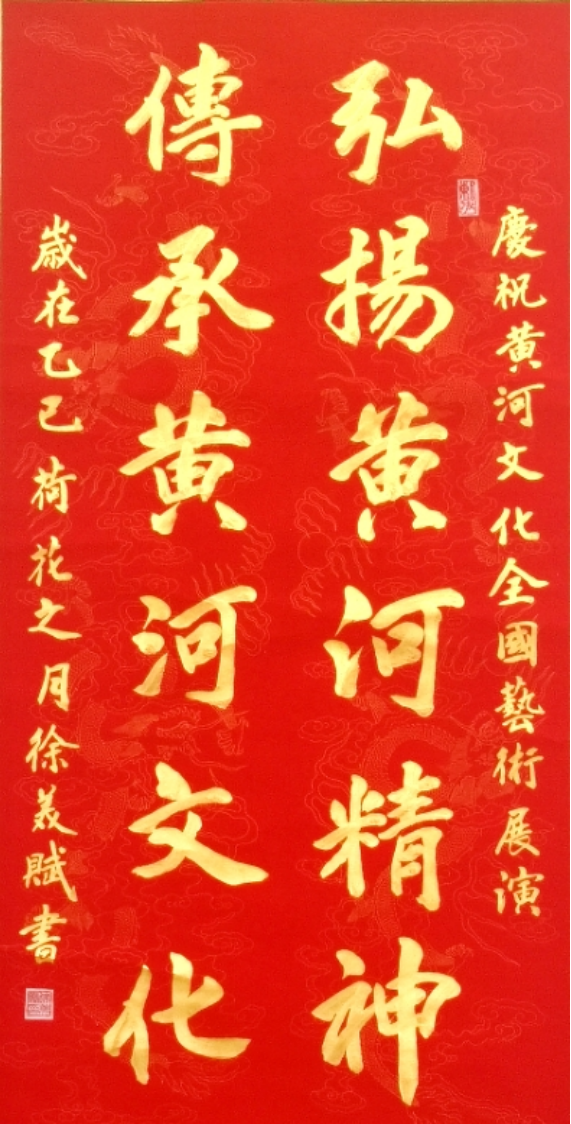 慶祝黄河文化全國藝術展演
弘揚黄河精神
傳承黄河文化
歲在乙巳荷花之月徐美賦書